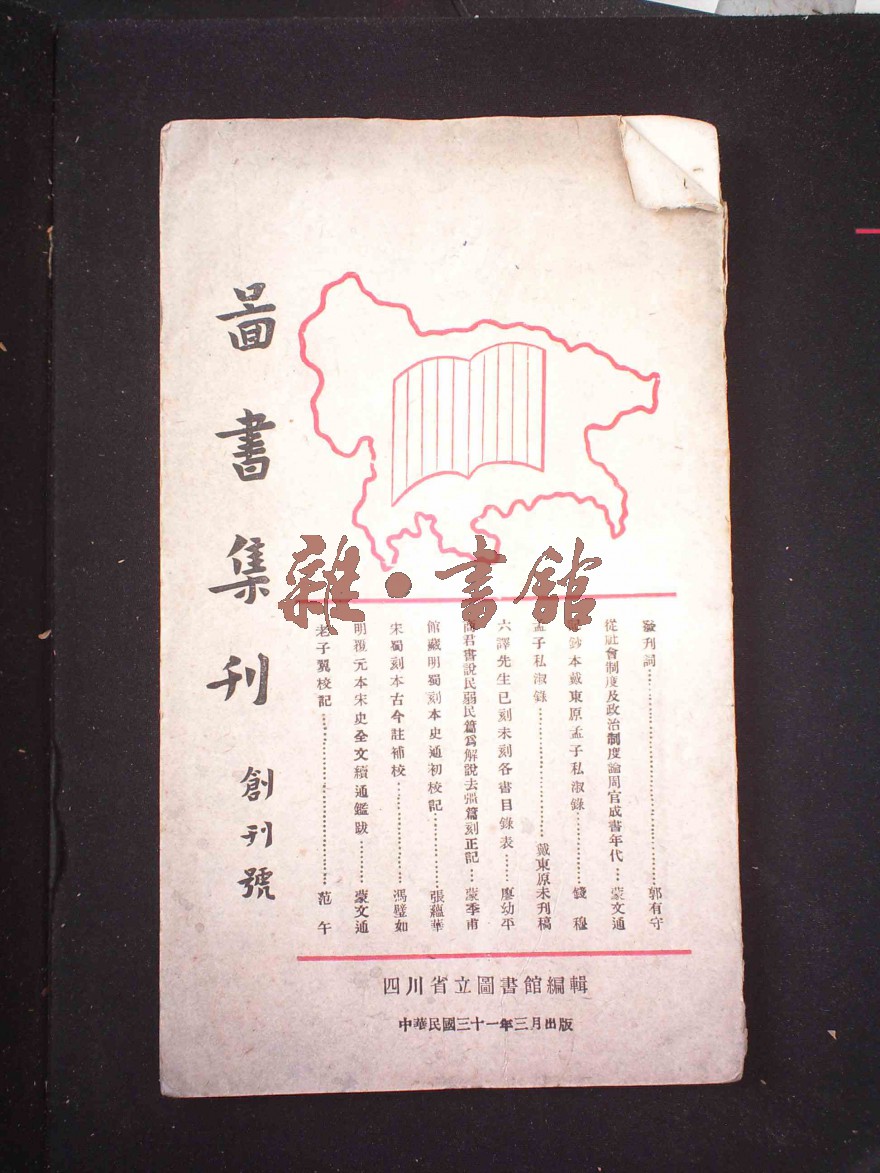 圖書集刊 創刊號
發刊詞……郭有守
從社會制度及政治制度論周官成書年代…蒙文通
鈔本戴東原孟子私淑錄……錢穆
孟子私淑錄……戴東原未刊稿
六譯先生已刻未刻各書目錄表……廖幼平
商君書說民弱民篇為解說去彊篇刻正記…蒙季甫
館藏明蜀刻本史通初校記……張蘊華
宋蜀刻本古今註補校……馮璧如
明覆元本宋史全文續通鑑跋……蒙文通
老子翼校記……范午
四川省立圖書館編輯
中華民國三十一年三月出版
雜·書館